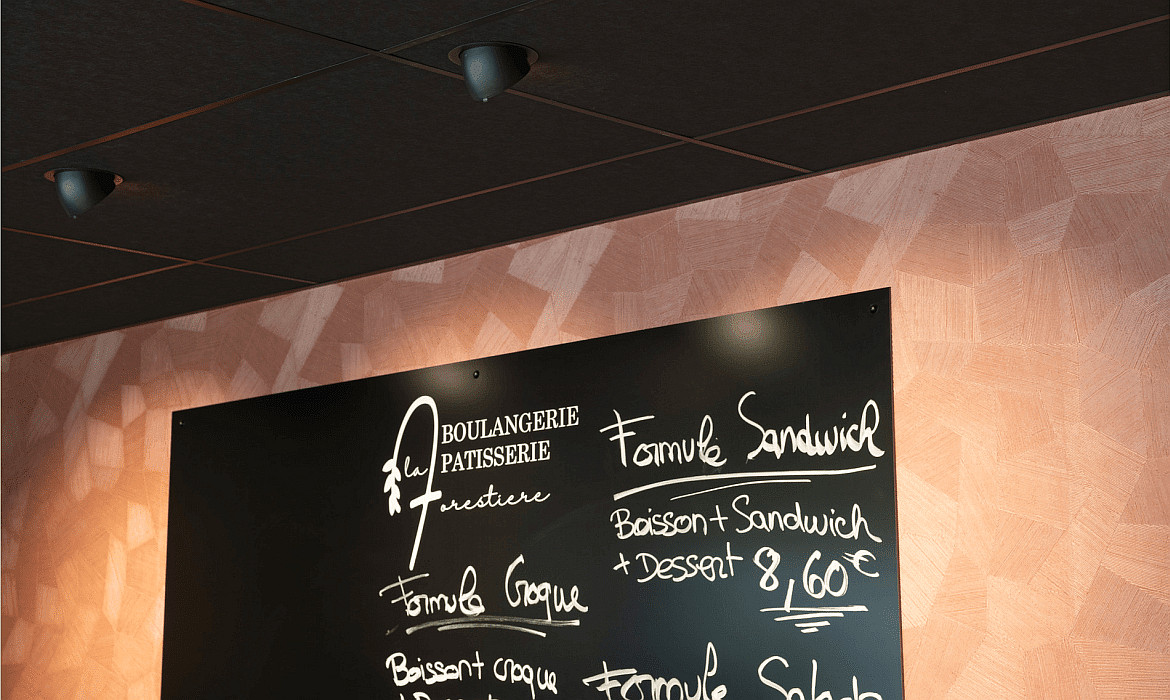 BOULANGERIE
la PATISSERIE
Forestiere
Formule Croque
Boisson+ croque
+ Dessert
Formule Sandwich
Boisson + Sandwich
+ Dessert 8,60€
Formule Salade